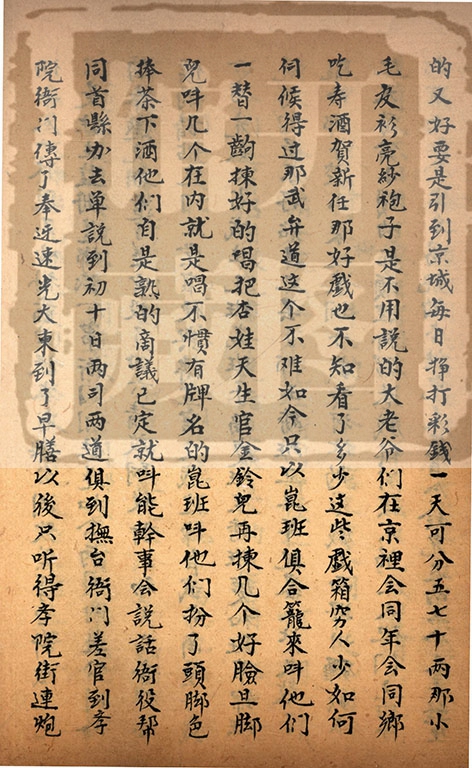 的又好要是引到京城每日掙打彩錢一天可分五七十兩那小
毛皮衫亮紗袍子是不用說的大老爷们在京裡会同年会同鄉
吃寿酒賀新任那好戲也不知看了多少这些戲箱穷人少如何
伺候得过那武弁道这个不难如今只以崑班俱合籠來呌他们
一替一齣揀好的唱把杏娃天生官金鈴児再揀几个好臉旦脚
児呌几个在内就是唱不慣有牌名的崑班呌他们扮了頭脚色
捧茶下酒他们自是熟的商議已定就呌能幹事会説話衙役帮
同首縣办去单説到初十日两司两道俱到撫台衙门差官到学
院衙门傳了奉迓速光大東到了早膳以後只听得学院街連炮